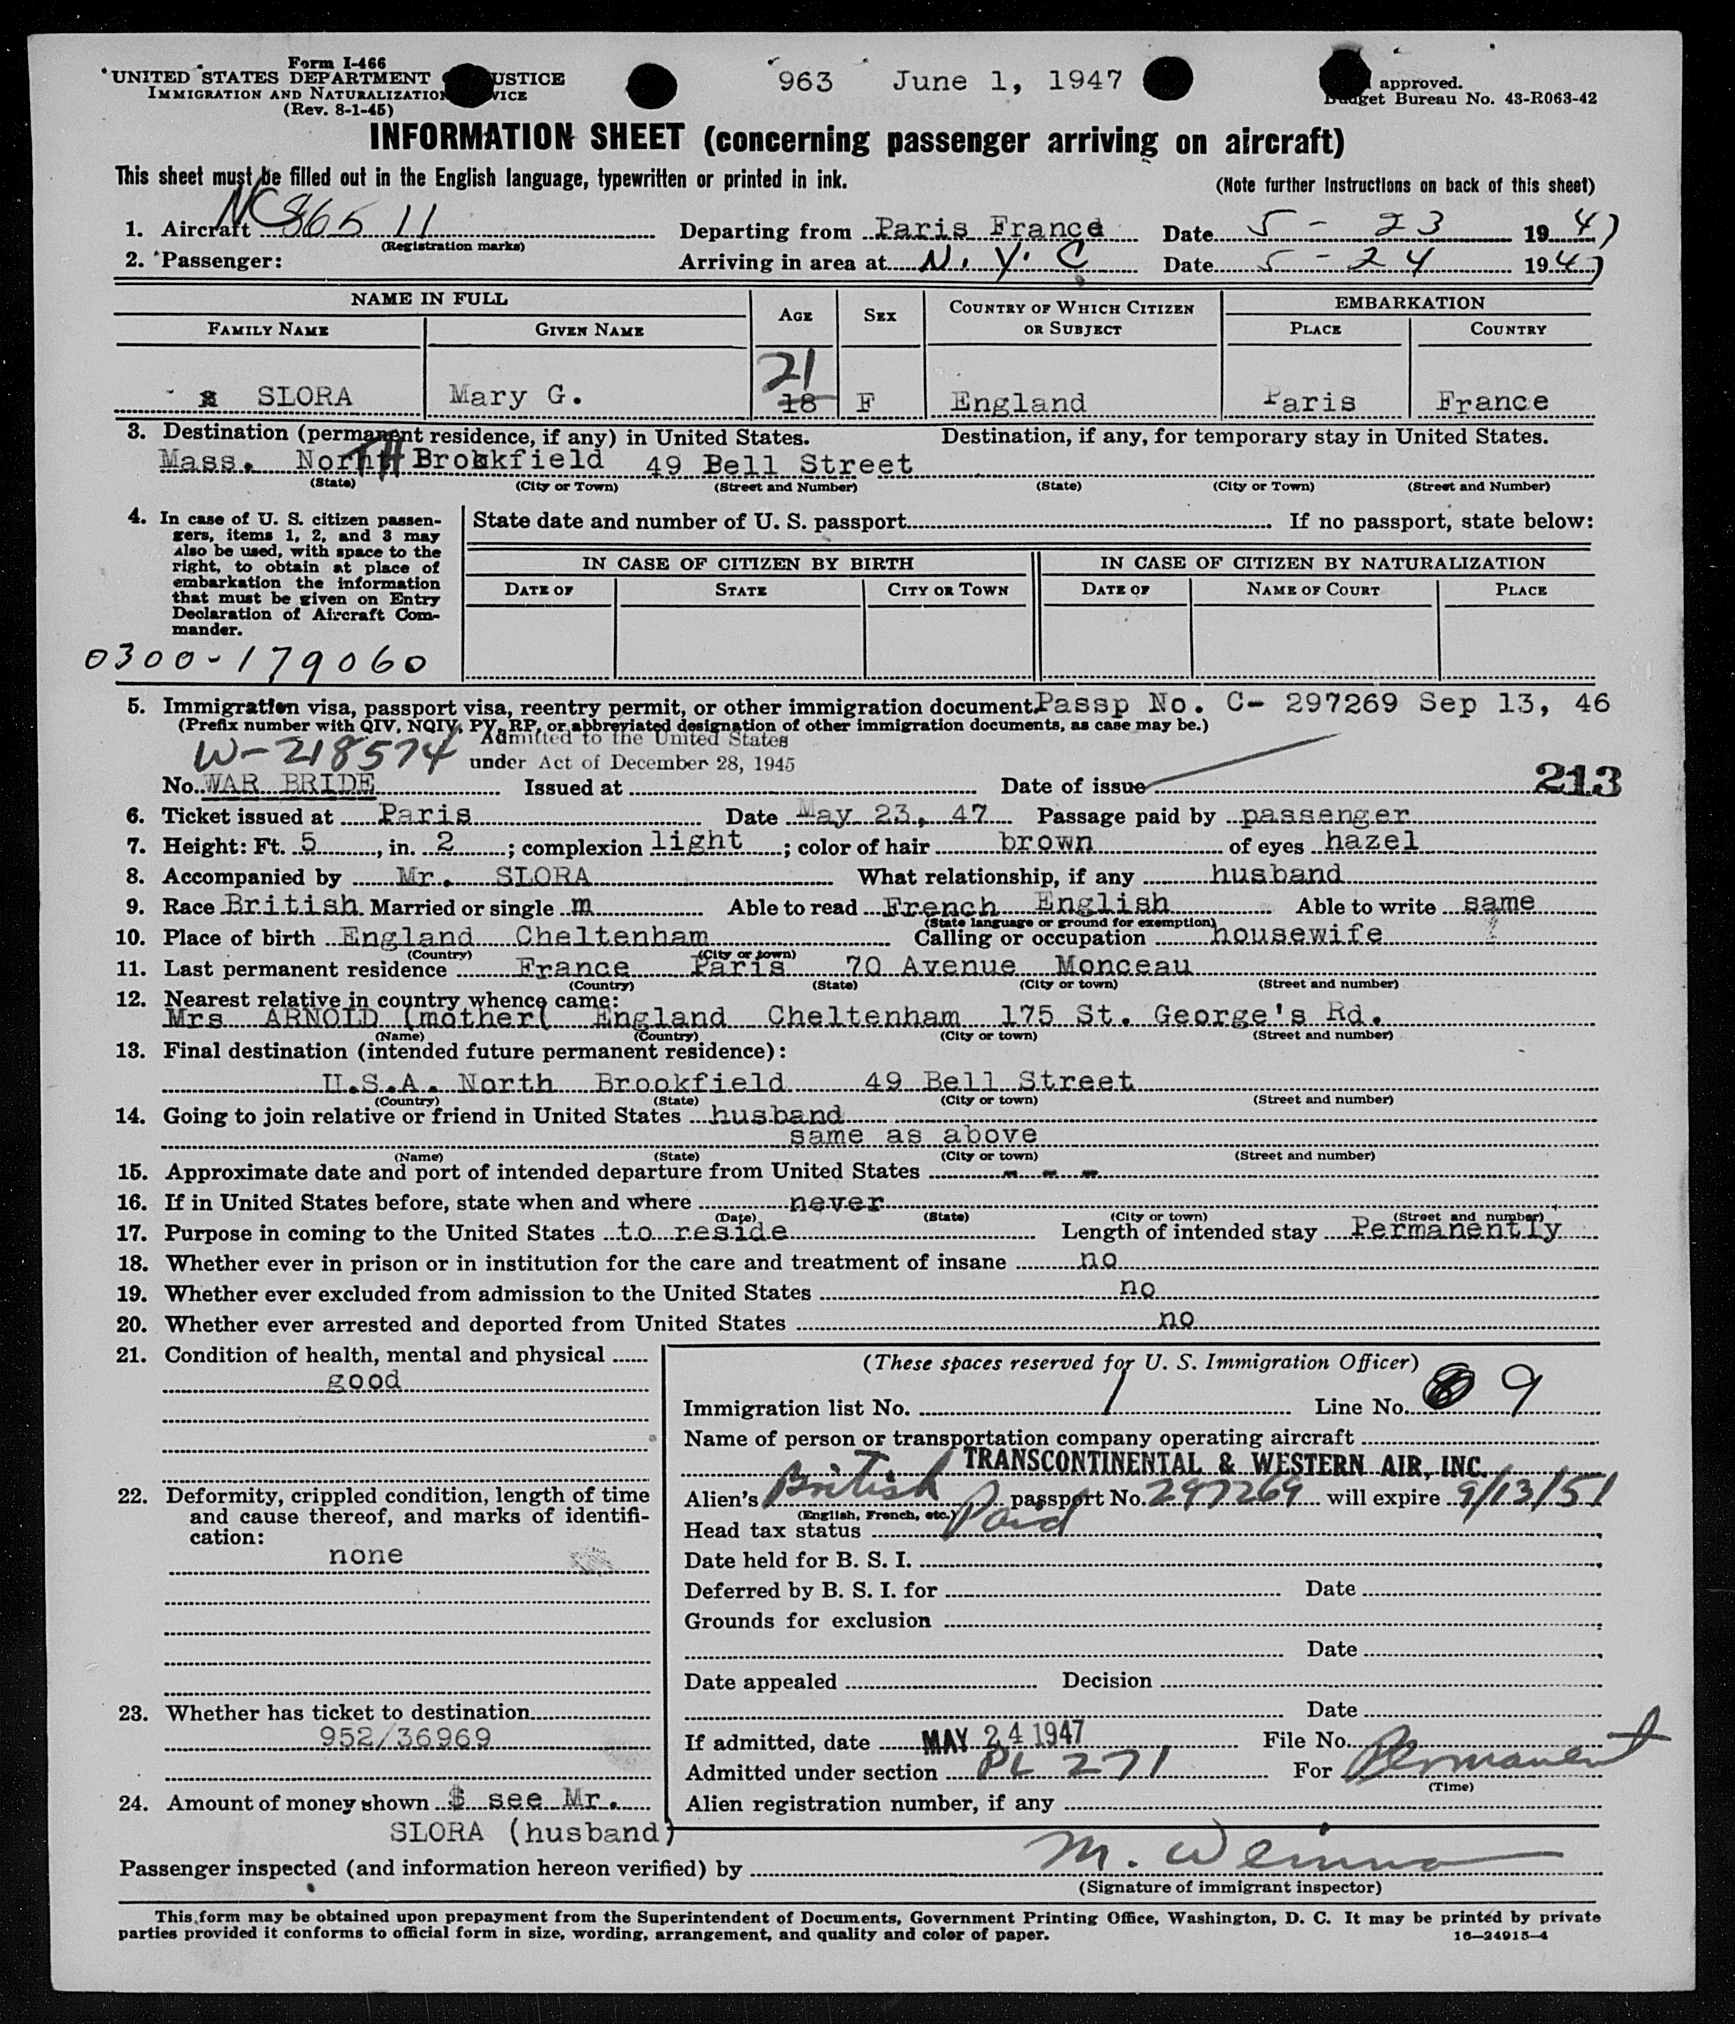 Form I-466
UNITED STATES DEPARTMENT USTICE
IMMIGRATION AND NATURALIZATION VICE
(Rev. 8-1-45)
963 June 1, 1947
approved.
Budget Bureau No. 43-R063-42
INFORMATION SHEET (concerning passenger arriving on aircraft)
This sheet must be filled out in the English language, typewritten or printed in ink.
(Note further instructions on back of this sheet)
1. Aircraft NC86511 Departing from Paris France Date 5 - 23 1947
(Registration marks)
2. Passenger: Arriving in area at N.Y.C Date 5 - 24 1947
NAME IN FULL AGE SEX COUNTRY OF WHICH CITIZEN OR SUBJECT EMBARKATION
FAMILY NAME GIVEN NAME PLACE COUNTRY
21
SLORA Mary G. 18 F England Paris France
3. Destination (permanent residence, if any) in United States. Destination, if any, for temporary stay in United States.
Mass. North Brookfield 49 Bell Street
(State) (City or Town) (Street and Number) (State) (City or Town) (Street and Number)
4. In case of U. S. citizen passen-
gers, items 1, 2, and 3 may
also be used, with space to the
right, to obtain at place of
embarkation the information
that must be given on Entry
Declaration of Aircraft Com-
mander.
0300-179060
State date and number of U. S. passport If no passport, state below:
IN CASE OF CITIZEN BY BIRTH IN CASE OF CITIZEN BY NATURALIZATION
DATE OF STATE CITY OR TOWN DATE OF NAME OF COURT PLACE
5. Immigration visa, passport visa, reentry permit, or other immigration document. Passp No. C- 297269 Sep 13, 46
(Prefix number with QIV, NQIV, PV, RP, or abbreviated designation of other immigration documents, as case may be.)
W-218574 Admitted to the United States
under Act of December 28, 1945
No. WAR BRIDE Issued at Date of issue 213
6. Ticket issued at Paris Date May 23, 47 Passage paid by passenger
7. Height: Ft. 5, in. 2; complexion light; color of hair brown of eyes hazel
8. Accompanied by Mr. SLORA What relationship, if any husband
9. Race British Married or single m Able to read French English Able to write same
(State language or ground for exemption)
10. Place of birth England Cheltenham Calling or occupation housewife
(Country) (City or town)
11. Last permanent residence France Paris 70 Avenue Monceau
(Country) (State) (City or town) (Street and number)
12. Nearest relative in country whence came:
Mrs ARNOLD (mother( England Cheltenham 175 St. George's Rd.
(Name) (Country) (City or town) (Street and number)
13. Final destination (intended future permanent residence):
U.S.A. North Brookfield 49 Bell Street
(Country) (State) (City or town) (Street and number)
14. Going to join relative or friend in United States husband
same as above
(Name) (State) (City or town) (Street and number)
15. Approximate date and port of intended departure from United States - - -
16. If in United States before, state when and where never
(Date) (State) (City or town) (Street and number)
17. Purpose in coming to the United States to reside Length of intended stay Permanently
18. Whether ever in prison or in institution for the care and treatment of insane no
19. Whether ever excluded from admission to the United States no
20. Whether ever arrested and deported from United States no
21. Condition of health, mental and physical
good
22. Deformity, crippled condition, length of time
and cause thereof, and marks of identifi-
cation:
none
23. Whether has ticket to destination
952/36969
24. Amount of money shown $ see Mr.
SLORA (husband)
(These spaces reserved for U. S. Immigration Officer)
Immigration list No. 1 Line No. 9
Name of person or transportation company operating aircraft
TRANSCONTINENTAL & WESTERN AIR, INC.
Alien's British passport No. 297269 will expire 9/13/51
(English, French, etc.)
Head tax status Paid
Date held for B. S. I.
Deferred by B. S. I. for Date
Grounds for exclusion
Date
Date appealed Decision
Date
If admitted, date MAY 24 1947 File No.
Admitted under section PL 271 For Permanent
(Time)
Alien registration number, if any
Passenger inspected (and information hereon verified) by
(Signature of immigrant inspector)
This form may be obtained upon prepayment from the Superintendent of Documents, Government Printing Office, Washington, D. C. It may be printed by private
parties provided it conforms to official form in size, wording, arrangement, and quality and color of paper.
16—24915-4